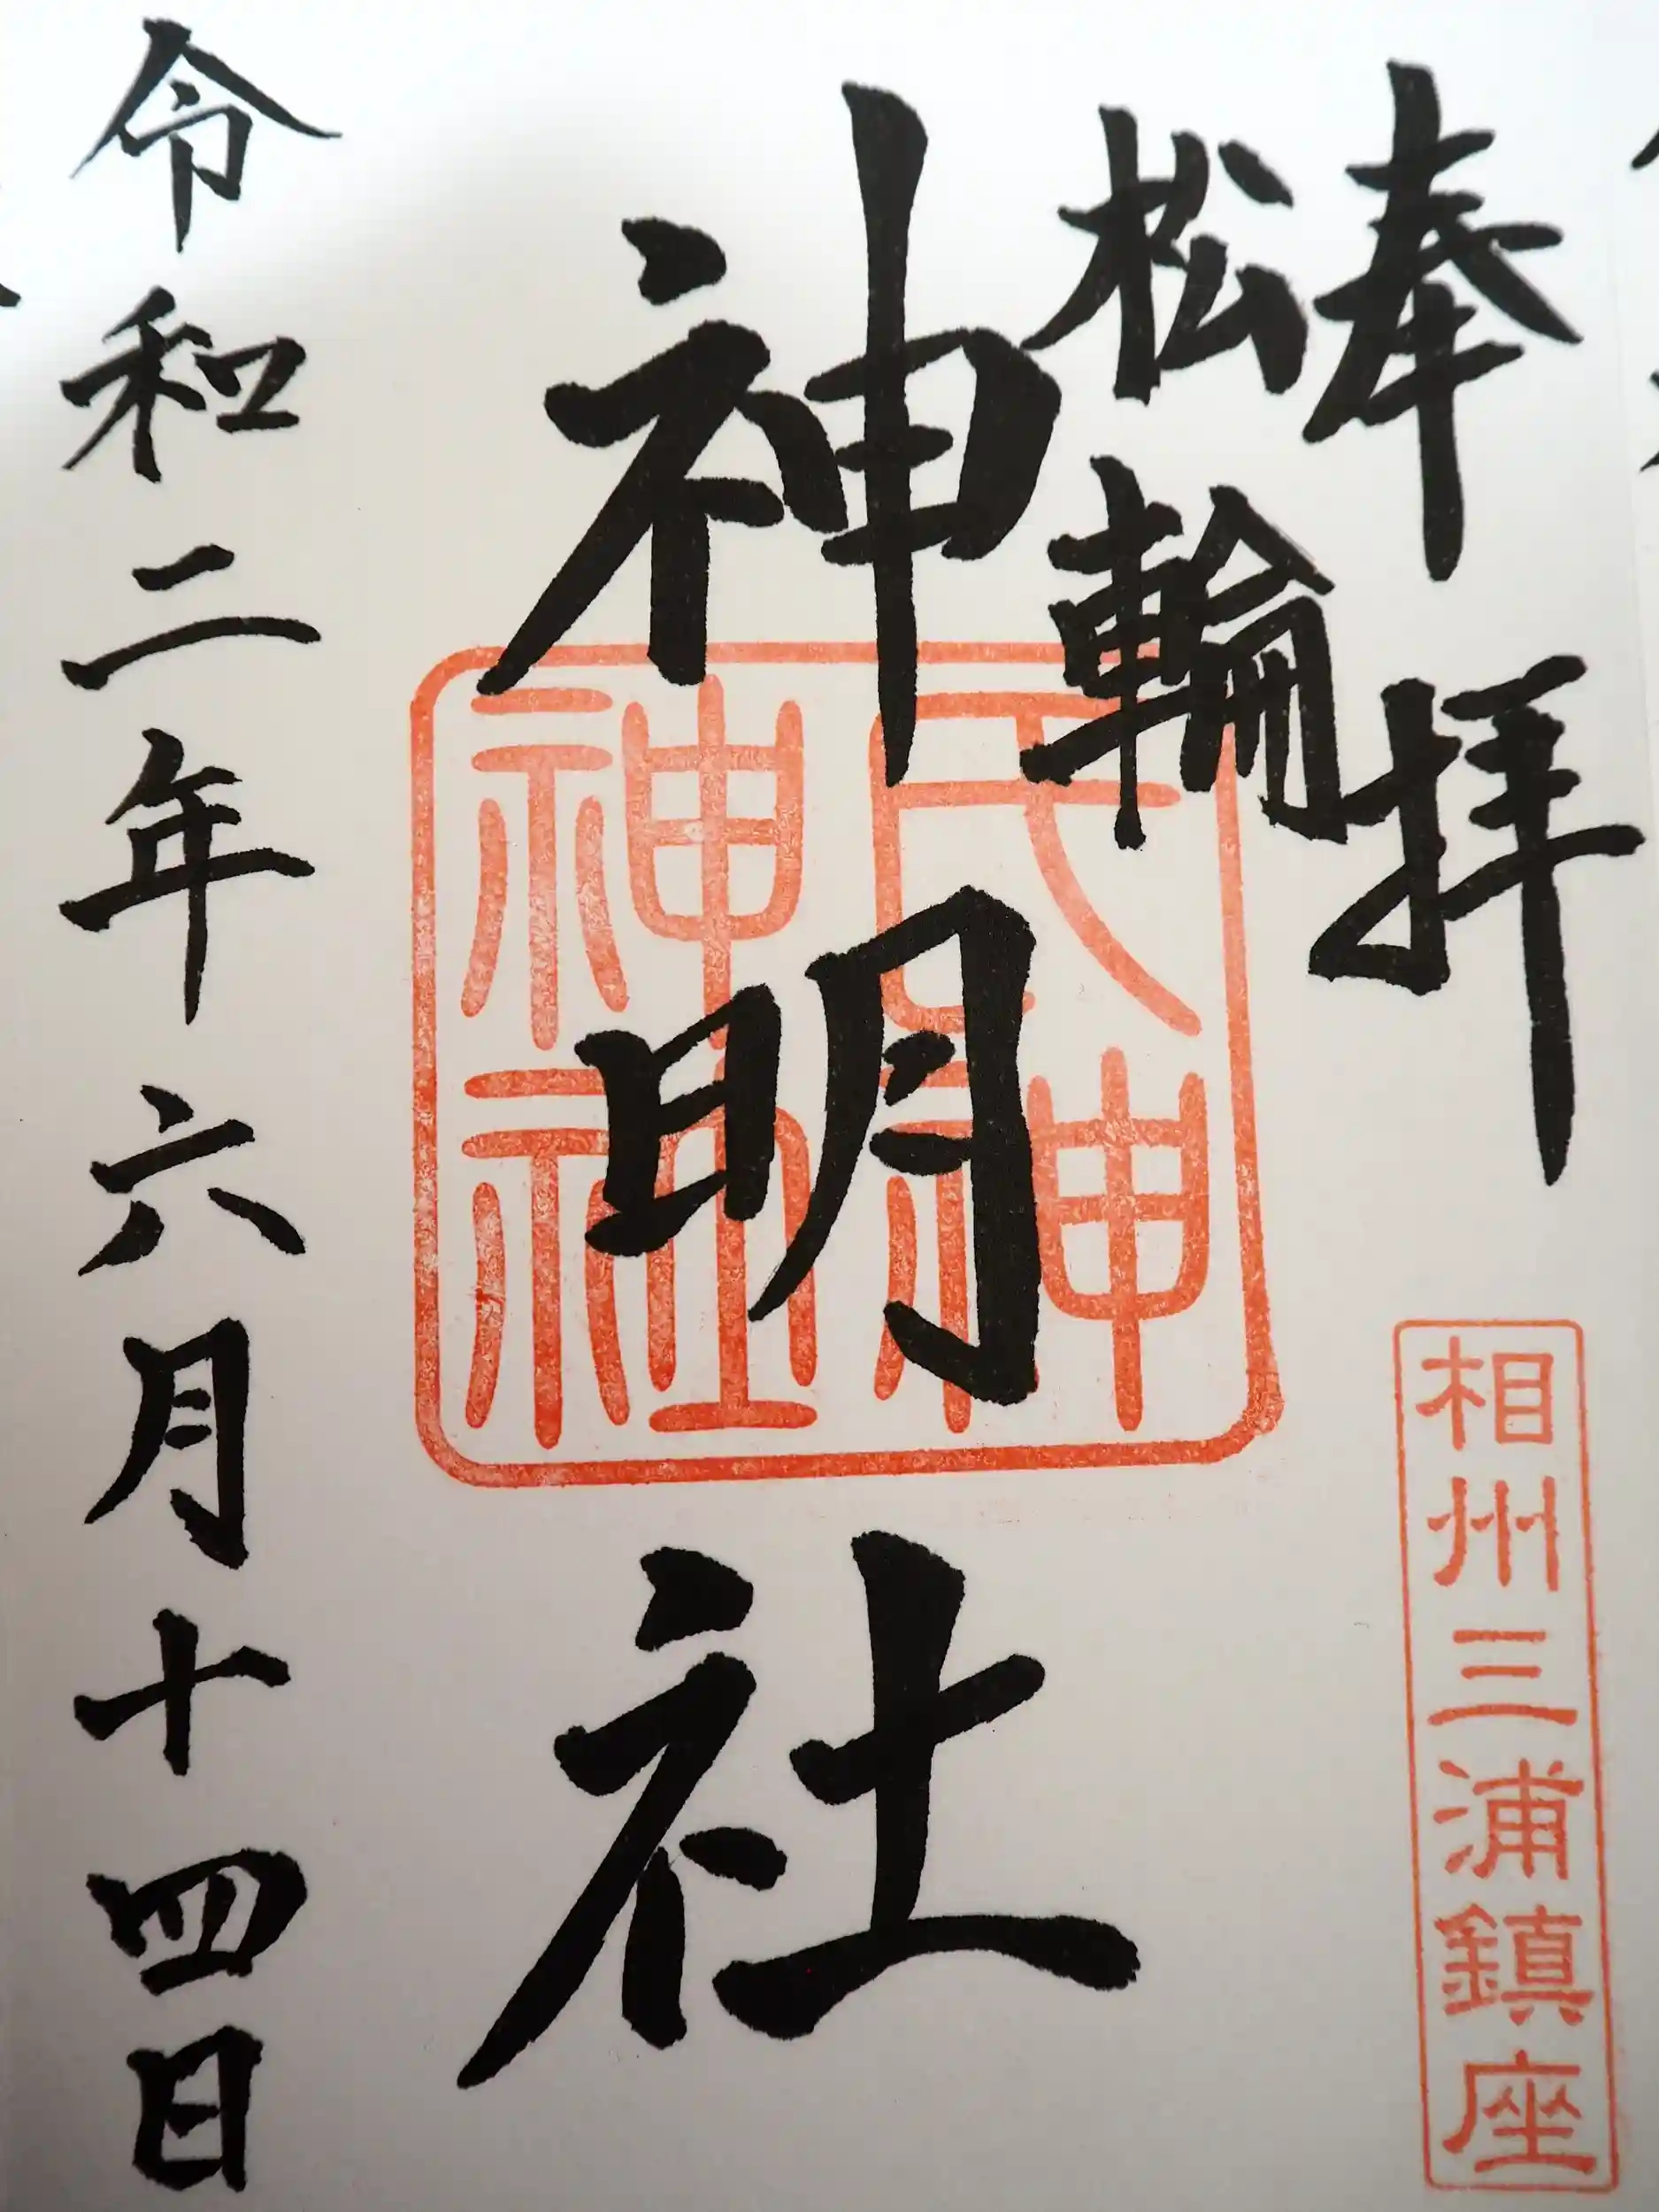 奉拝
松輪
神明社
令和二年六月十四日
氏神
神社
相州三浦鎮座